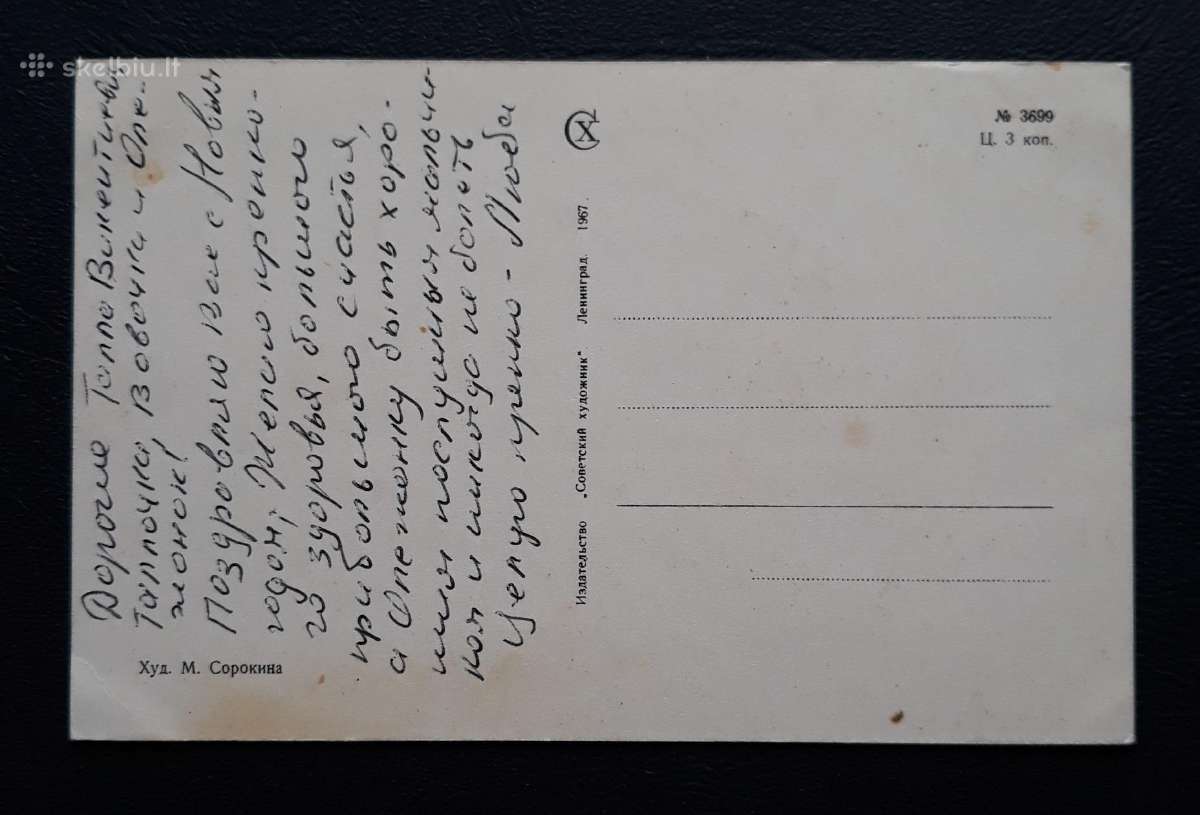 skelbiu.lt
Дорогие Талла Викентьевна
Таллочка, Вовочка и Оле-
жонок!
Поздравляю Вас с Новым
годом, Желаю крепко-
го здоровья, большого
прибольшого счастья,
а Олежонку быть хоро-
шим послушным мальчи-
ком и никогда не болеть
Целую крепко - Люба
Худ. М. Сорокина
Издательство „Советский художник“ Ленинград. 1967.
№ 3699
Ц. 3 коп.